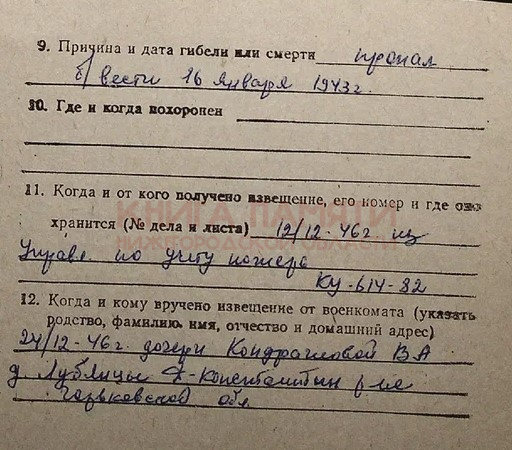 9. Причина и дата гибели или смерти пропал
б/вести 16 января 1943 г.
10. Где и когда похоронен
11. Когда и от кого получено извещение, его номер и где оно
хранится (№ дела и листа) 12/12-46 г из
КНИГА ПАМЯТИ
НИЖЕГОРОДСКОЙ ОБЛАСТИ
Управл по учету потерь
КУ-614-82
12. Когда и кому вручено извещение от военкомата (указать
родство, фамилию, имя, отчество и домашний адрес)
24/12-46 г. дочери Кондрашковой В А
д Лублицы Д-Константин р-не
Горьковской обл